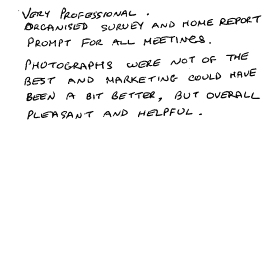 VERY PROFESSIONAL.
ORGANISED SURVEY AND HOME REPORT
PROMPT FOR ALL MEETINGS.
PHOTOGRAPHS WERE NOT OF THE
BEST AND MARKETING COULD HAVE
BEEN A BIT BETTER, BUT OVERALL
PLEASANT AND HELPFUL.